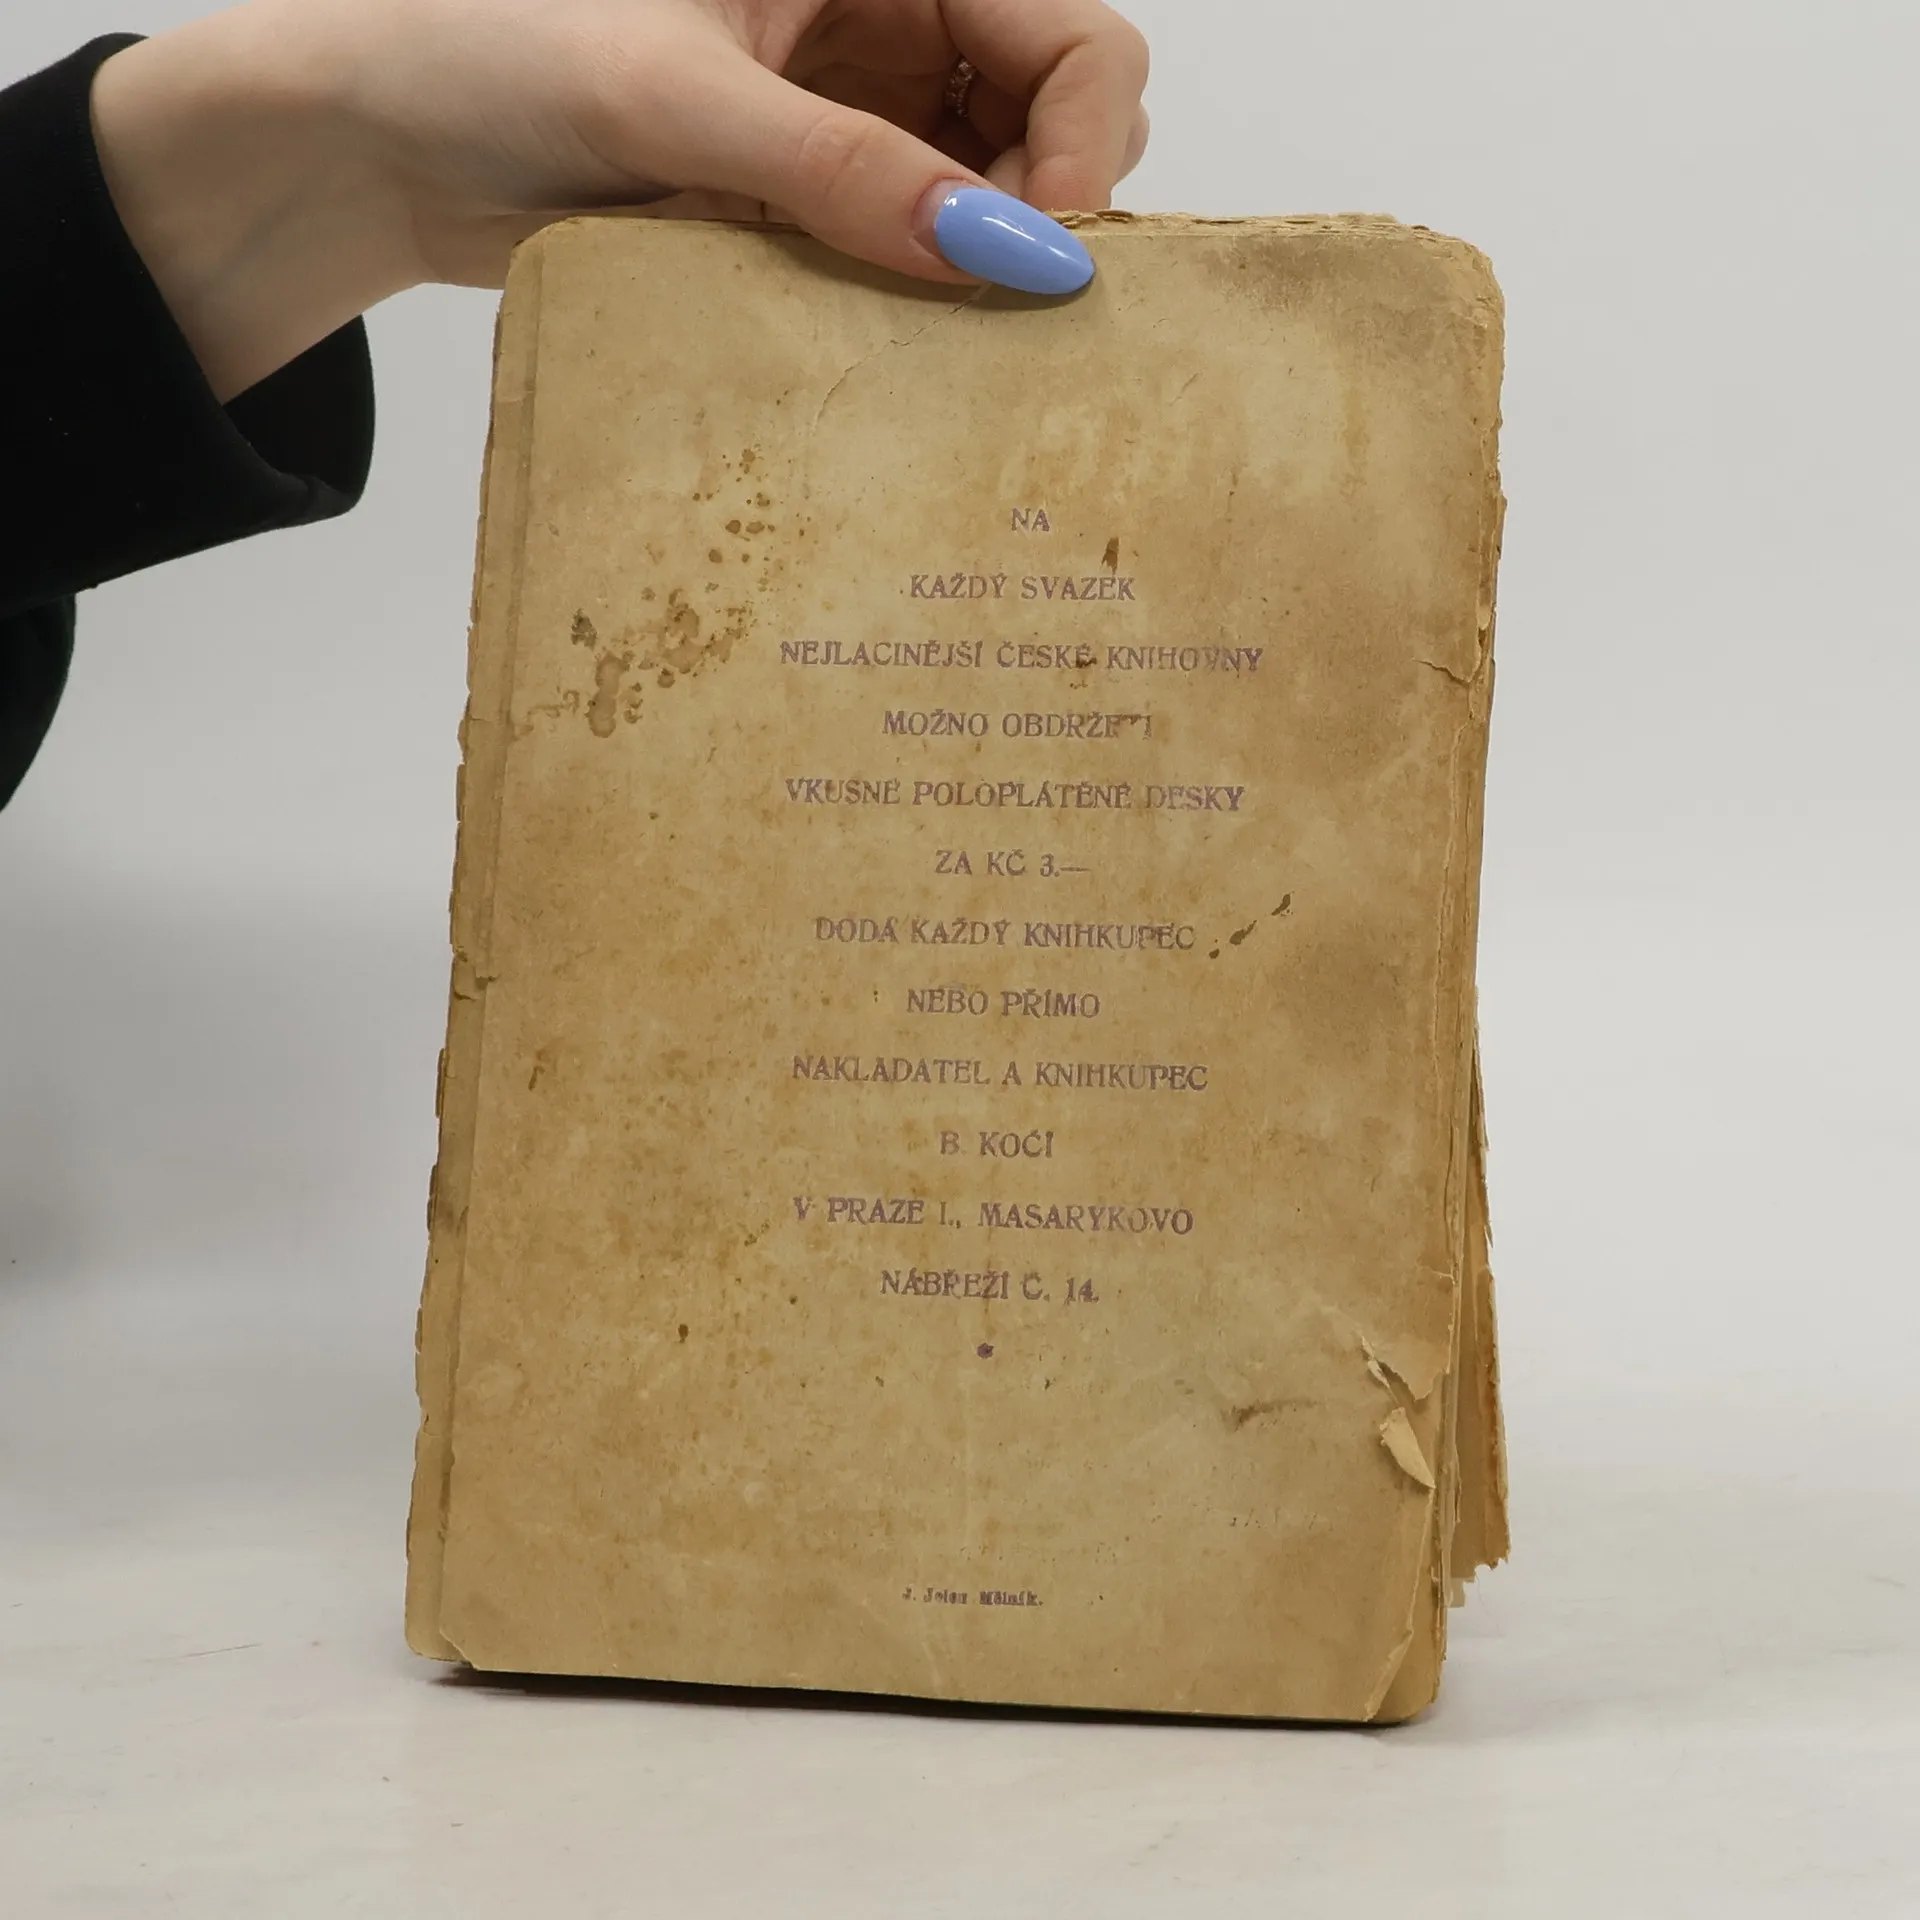 NA
KAŽDÝ SVAZEK
NEJLACINĚJŠÍ ČESKÉ KNIHOVNY
MOŽNO OBDRŽETI
VKUSNÉ POLOPLÁTĚNÉ DESKY
ZA KČ 3.—
DODÁ KAŽDÝ KNIHKUPEC
NEBO PŘÍMO
NAKLADATEL A KNIHKUPEC
B. KOČÍ
V PRAZE I., MASARYKOVO
NÁBŘEŽÍ Č. 14.
*
J. Mělník.